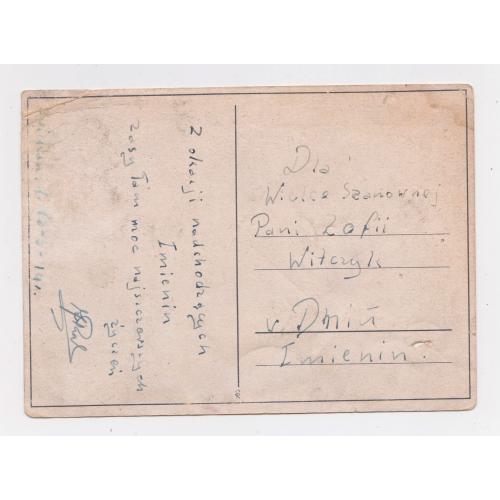 Z okazji nadchodzących
Imienin
zasyłam moc najszczerszych
życzeń
Dla
Wielce Szanownej
Pani Zofii
Witczyk
w Dniu
Imienin.